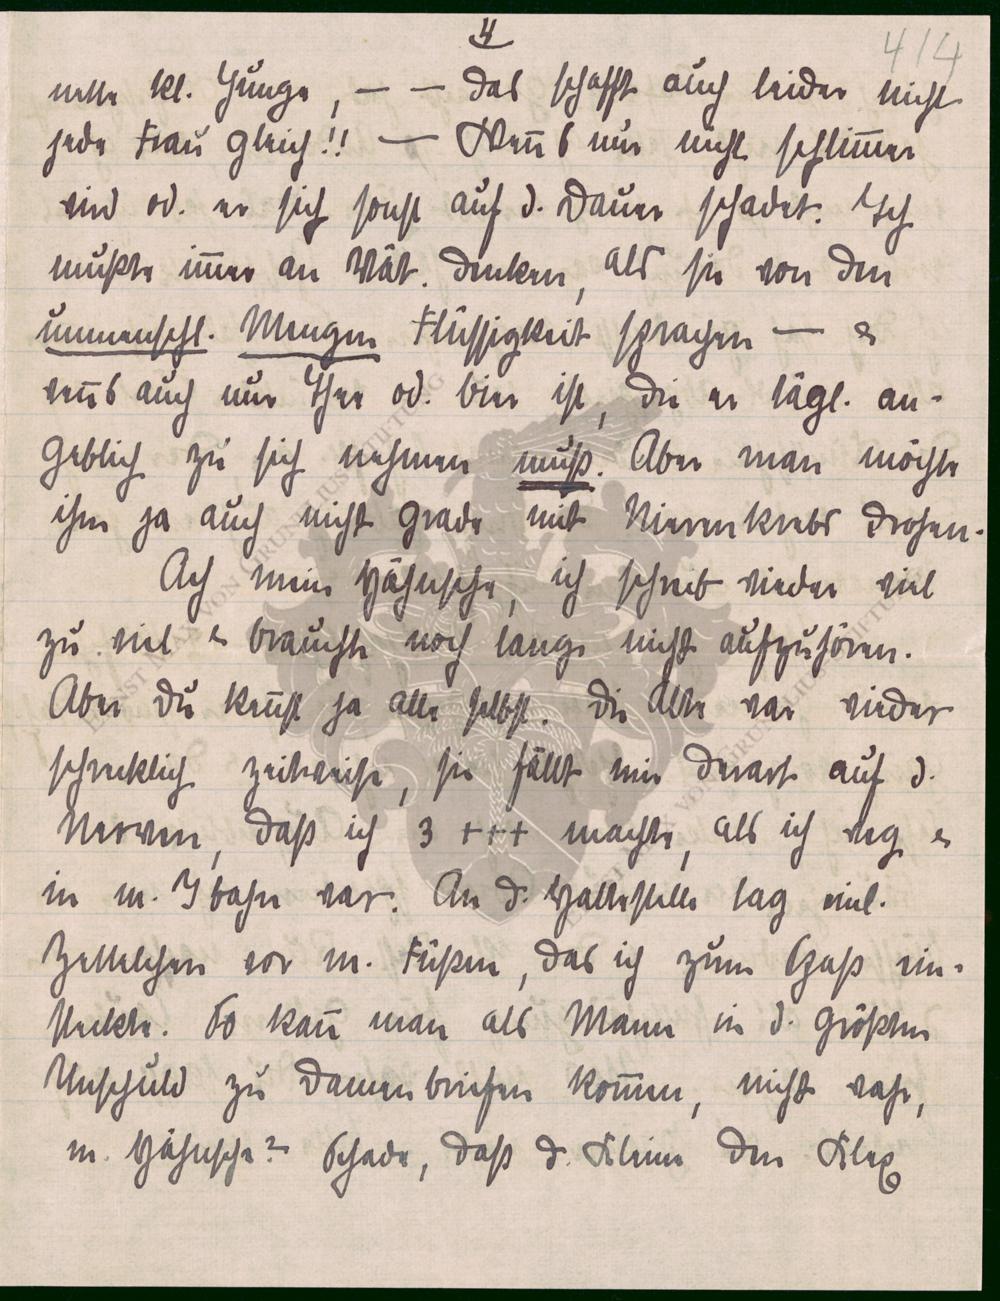 4
4/4
nette kl. Junge, — — das schafft auch leider nicht
jede Frau gleich!! — Wenn's nur nicht schlimmer
wird od. er sich sonst auf d. Dauer schadet. Ich
mußte immer an Vät. denken, als sie von den
unmenschl. Mengen Flüssigkeit sprachen — &
wenn's auch nur Thee od. bier ist, die er tägl. an-
geblich zu sich nehmen muß. Aber man möchte
ihm ja auch nicht grade mit Nierenkrebs drohen.
Ach mein Hähnsche, ich schreib wieder viel
zu viel & brauchte noch lange nicht aufzuhören.
Aber Du kennst ja alle selbst. Die Alte war wieder
schrecklich zeitweise, sie fällt mir derart auf d.
Nerven, daß ich 3 +++ machte, als ich weg &
in m. bahn war. An d. Haltestelle lag
Zettelchen vor m. Füßen, das ich zum Spaß ein-
steckte. So kann man als Mann in d. größten
Unschuld zu Damenbriefen kommen, nicht wahr,
m. Hähnsche? Schade, daß d. Kleine den Klex
ERNST MAX VON GRUNELIUS-STIFTUNG
ERNST MAX VON GRUNELIUS-STIFTUNG